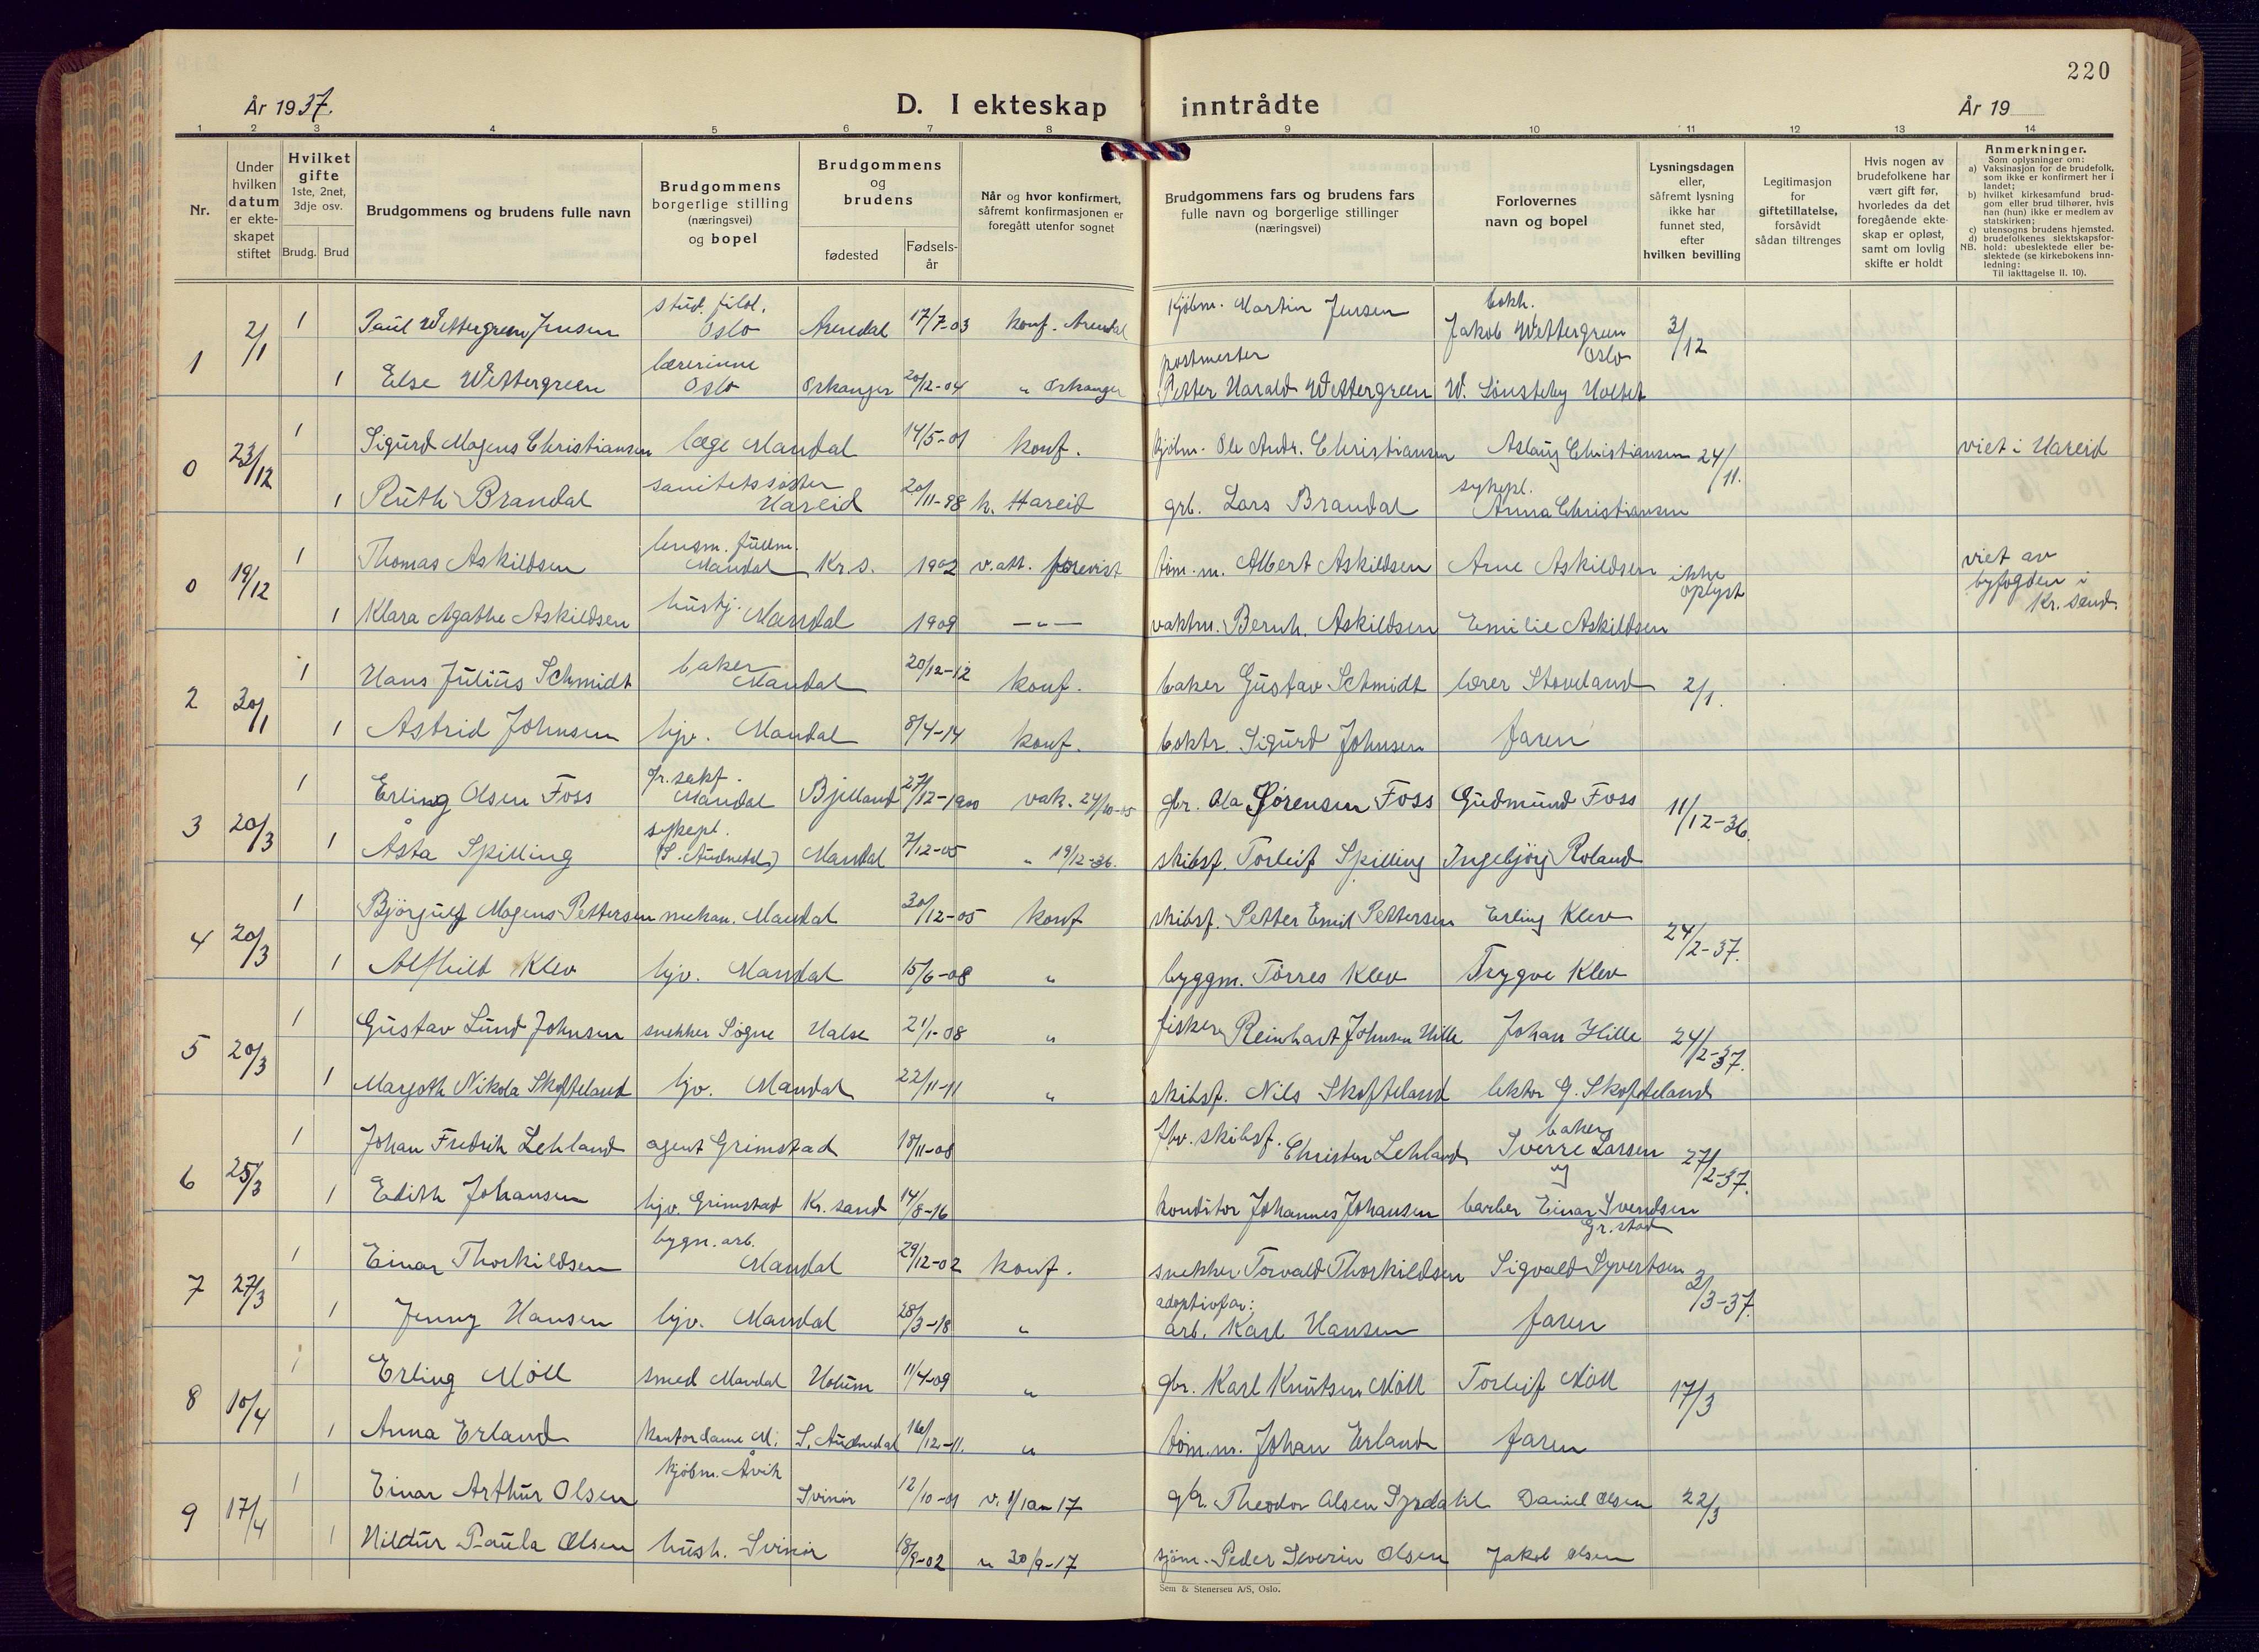 220
År 1937.
D. I ekteskap inntrådte
År 19
1 2 3 4 5 6 7 8 9 10 11 12 13 14
Nr.
Under hvilken datum er ekte-skapet stiftet
Hvilket gifte 1ste, 2net, 3dje osv.
Brudg. Brud
Brudgommens og brudens fulle navn
Brudgommens borgerlige stilling (næringsvei) og bopel
Brudgommens og brudens
fødested
Fødsels-år
Når og hvor konfirmert, såfremt konfirmasjonen er foregått utenfor sognet
Brudgommens fars og brudens fars fulle navn og borgerlige stillinger (næringsvei)
Forlovernes navn og bopel
Lysningsdagen eller, såfremt lysning ikke har funnet sted, efter hvilken bevilling
Legitimasjon for giftetillatelse, forsåvidt sådan tiltrenges
Hvis nogen av brudefolkene har vært gift før, hvorledes da det foregående ekte-skap er opløst, samt om lovlig skifte er holdt
Anmerkninger.
Som oplysninger om:
a) Vaksinasjon for de brudefolk, som ikke er konfirmert her i landet;
b) hvilket kirkesamfund brud-gom eller brud tilhører, hvis han (hun) ikke er medlem av statskirken;
c) utensogns brudens hjemsted.
d) brudefolkenes slektskapsfor-hold: ubeslektede eller be-slektede (se kirkebokens inn-ledning:
NB.
Til iakttagelse II. 10).
1 2/1 1 Paul Wettergreen Jensen stud. filol. Oslo Arendal 17/7-03 konf. Arendal Kjøbm. Martin Jensen bokh. Jakob Wettergreen Oslo 3/12
1 Else Wettergreen lærerinne Oslo Orkanger 20/12-04 " Orkanger postmester Petter Harald Wettergreen W. Sønsteby Holtet
0 23/12 1 Sigurd Mogens Christiansen læge Mandal 14/5-01 konf. kjøbm. Ole Andr. Christiansen Aslaug Christiansen 24/11. viet i Hareid
1 Ruth Brandal sanitetssøster Hareid 20/11-98 k. Hareid grb. Lars Brandal sykepl. Anna Christiansen
0 19/12 1 Thomas Askildsen lensm. fullm. Mandal Kr.s. 1902 v.att. forevist tøm.m. Albert Askildsen Arne Askildsen ikke oplyst viet av byfogden i Kr.sand.
1 Klara Agathe Askildsen hustj. Mandal 1909 —"— vaktm. Bernh. Askildsen Emilie Askildsen
2 30/1 1 Hans Julius Schmidt baker Mandal 20/12-12 konf. baker Gustav Schmidt lærer Stoveland 2/1.
1 Astrid Johnsen hjv. Mandal 8/4-14 konf. boktr. Sigurd Johnsen faren
3 20/3 1 Erling Olsen Foss fr. sekf. Mandal Bjelland 27/12-1900 vak. 24/10-05 gbr. Ola Sørensen Foss Gudmund Foss 11/12-36.
1 Åsta Spilling sykepl. (S. Audnedal) Mandal 7/12-05 " 19/12-36. skibsf. Torleif Spilling Ingebjørg Roland
4 20/3 1 Bjørgulf Mogens Pettersen mekan. Mandal 30/12-05 konf skibsf. Petter Emil Pettersen Erling Klev 24/2-37.
1 Alfhild Klev hjv. Mandal 15/6-08 " byggm. Tørres Klev Trygve Klev
5 20/3 1 Gustav Lund Johnsen snekker Søgne Halse 21/1-08 " fisker Reinhart Johnsen Hille Johan Hille 24/2-37.
1 Margoth Nikola Skofteland hjv. Mandal 22/11-11 " skibsf. Nils Skofteland lektor G. Skofteland
6 25/3 1 Johan Fredrik Lehland agent Grimstad 18/11-08 fhv. skibsf. Christen Lehland baker Sverre Larsen og 27/2-37.
1 Edith Johansen hjv. Grimstad Kr.sand 14/8-16 konditor Johannes Johansen barber Einar Svendsen Gr.stad
7 27/3 1 Einar Thorkildsen bygn. arb. Mandal 29/12-02 konf. snekker Torvald Thorkildsen Sigvald Syvertsen 2/3-37.
1 Jenny Hansen hjv. Mandal 28/3-18 " adoptivfar: arb. Karl Hansen faren
8 10/4 1 Erling Møll smed Mandal Holum 11/4-09 " gbr. Karl Knutsen Møll Torleif Møll 17/3
1 Anna Erland kontordame M. S. Audnedal 16/12-11. " tøm.m. Johan Erland faren
9 17/4 1 Einar Arthur Olsen kjøbm. Åvik Svinør 12/10-01 v. 1/10-17 gbr. Theodor Olsen Daniel Olsen 22/3
1 Hildur Paula Olsen hush. Svinør 18/9-02 " 30/9-17 sjøm. Peder Severin Olsen Jakob Olsen
Sem & Stenersen A/S, Oslo.